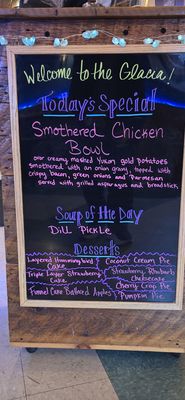 Welcome to the Glacia!
Today's Special
Smothered Chicken
Bowl
our creamy mashed Yukon gold potatoes
smothered with an onion gravy, topped with
crispy bacon, green onions and Parmesan
served with grilled asparagus and breadstick
Soup of the Day
Dill Pickle
Desserts
Layered Hummingbird Cake
Coconut Cream Pie
Triple Layer Strawberry Cake
Strawberry Rhubarb Cheesecake
Funnel Cake Apples
Cherry Crisp Pie
Pumpkin Pie